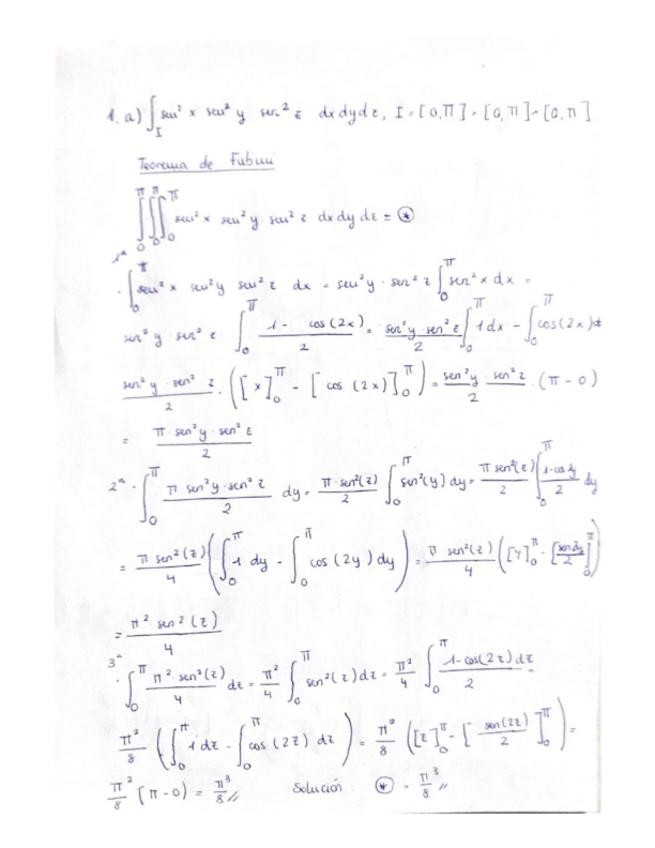 1. a) ∫_I sen² x sen² y sen² z dx dy dz, I = [0,π] × [0,π] × [0,π]
Teorema de Fubini
∫_0^π ∫_0^π ∫_0^π sen² x sen² y sen² z dx dy dz = ⊛
1ª · ∫_0^π sen² x sen² y sen² z dx = sen² y · sen² z ∫_0^π sen² x dx =
sen² y · sen² z · ∫_0^π (1 - cos(2x))/2 = (sen² y · sen² z)/2 ∫_0^π 1 dx - ∫_0^π cos(2x) dx
(sen² y · sen² z)/2 · ([x]_0^π - [cos (2x)]_0^π) = (sen² y · sen² z)/2 · (π - 0)
= (π · sen² y · sen² z)/2
2ª · ∫_0^π (π sen² y · sen² z)/2 dy = (π · sen²(z))/2 ∫_0^π sen²(y) dy = (π sen²(z))/2 ∫_0^π (1 - cos 2y)/2 dy
= (π sen²(z))/4 (∫_0^π 1 dy - ∫_0^π cos (2y) dy) = (π sen²(z))/4 ([y]_0^π - [(sen 2y)/2]_0^π)
= (π² sen²(z))/4
3ª · ∫_0^π (π² · sen²(z))/4 dz = π²/4 ∫_0^π sen²(z) dz = π²/4 ∫_0^π (1 - cos(2z) dz)/2 =
π²/8 (∫_0^π 1 dz - ∫_0^π cos (2z) dz) = π²/8 ([z]_0^π - [sen(2z)/2]_0^π) =
π²/8 [π - 0) = π³/8 // Solución: ⊛ = π³/8 //